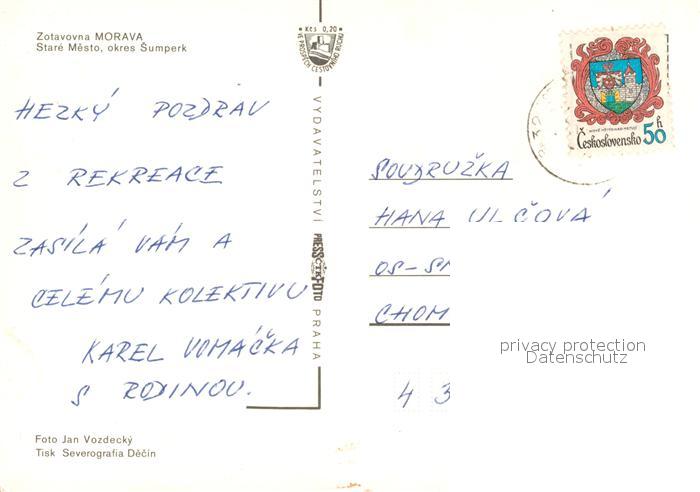 Zotavovna MORAVA
Staré Město, okres Šumperk
HEZKÝ POZDRAV
Z REKREACE
ZASÍLÁ VÁM A
CELÉMU KOLEKTIVU
KAREL VOMÁČKA
S RODINOU.
Foto Jan Vozdecký
Tisk Severografia Děčín
Kčs 0,20
VE PROSPĚCH CESTOVNÍHO RUCHU
VYDAVATELSTVÍ PRESSFOTO PRAHA
ČTK
Československo 50 h
SOUDRUŽKA
HANA ULČOVÁ
OS-SM
CHOM
privacy protection
Datenschutz
4 3